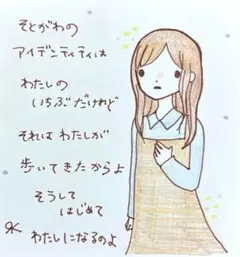 そとがわの
アイデンティティは
わたしの
いちぶだけれど
それは わたしが
歩いてきたからよ
そうして
はじめて
わたしになるのよ